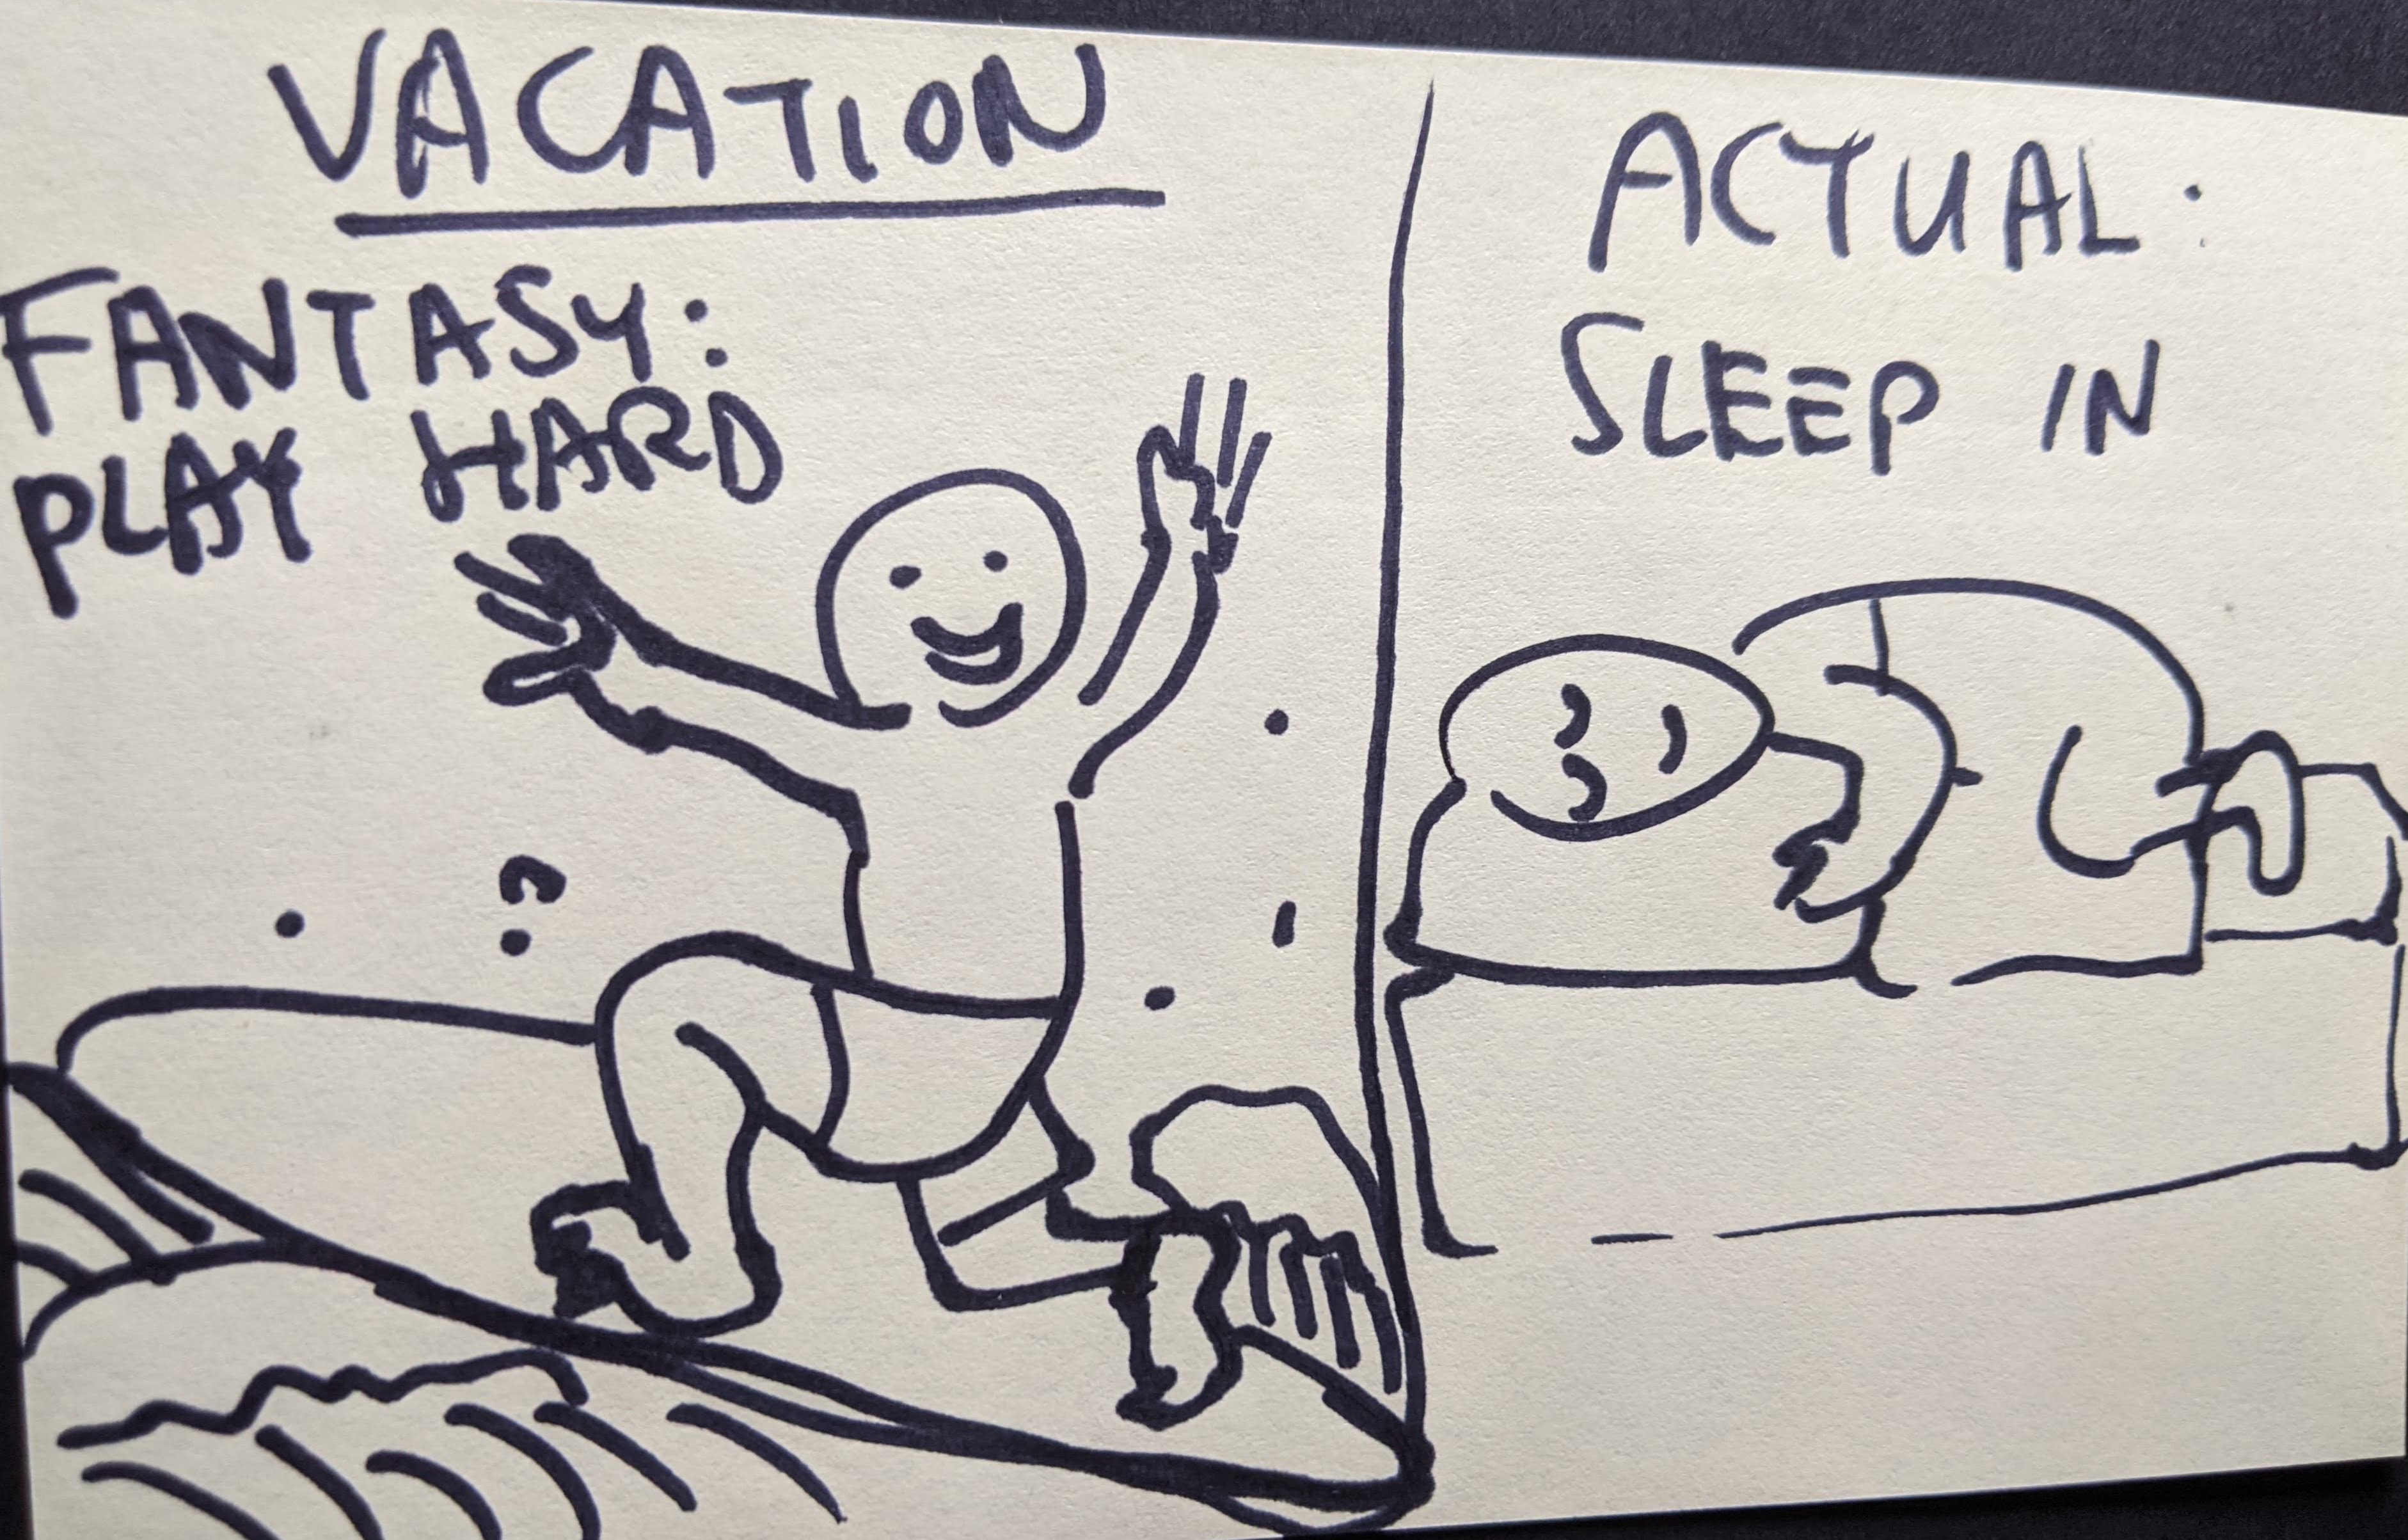 VACATION
FANTASY:
PLAY HARD
ACTUAL:
SLEEP IN